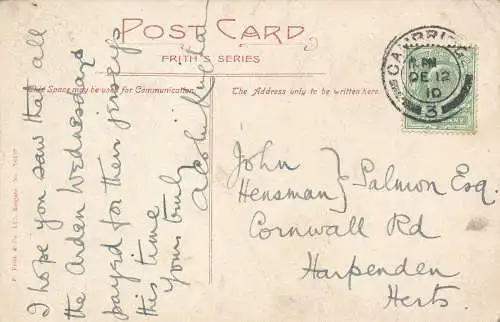 POST CARD
FRITH'S SERIES
This Space may be used for Communication.
The Address only to be written here.
I hope you saw that all
the Arden Wednesdays
payed for their jerseys
this time
Yours truly
John
Hensman } Salmon Esq.
Cornwall Rd
Harpenden
Herts.
CAMBRIDGE
PM
DE 12
10
3